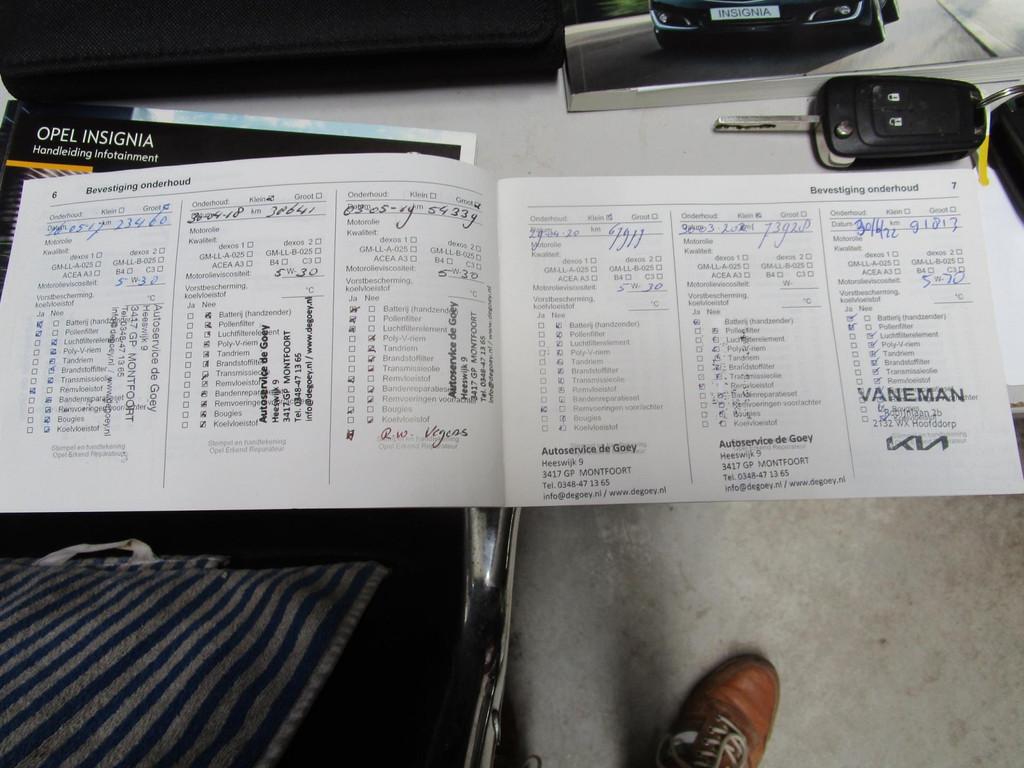 INSIGNIA
OPEL INSIGNIA
Handleiding Infotainment
6 Bevestiging onderhoud
Onderhoud: Klein Groot
km 23460
Motorolie
Kwaliteit:
dexos 1 dexos 2
GM-LL-A-025 GM-LL-B-025
ACEA A3 B4 C3
Motorolieviscositeit: 5-W-30
Vorstbescherming, koelvloeistof °C
Ja Nee
Batterij (handzender)
Pollenfilter
Luchtfilterelement
Poly-V-riem
Tandriem
Brandstoffilter
Transmissieolie
Remvloeistof
Bandenreparatieset
Remvoeringen voor/achter
Bougies
Koelvloeistof
Stempel en handtekening
Opel Erkend Reparateur
Autoservice de Goey
Heeswijk 9
3417 GP MONTFOORT
Tel. 0348-47 13 65
info@degoey.nl / www.degoey.nl
Onderhoud: Klein Groot
30-04-18 km 38641
Motorolie
Kwaliteit:
dexos 1 dexos 2
GM-LL-A-025 GM-LL-B-025
ACEA A3 B4 C3
Motorolieviscositeit: 5-W-30
Vorstbescherming, koelvloeistof °C
Ja Nee
Batterij (handzender)
Pollenfilter
Luchtfilterelement
Poly-V-riem
Tandriem
Brandstoffilter
Transmissieolie
Remvloeistof
Bandenreparatieset
Remvoeringen voor/achter
Bougies
Koelvloeistof
Stempel en handtekening
Opel Erkend Reparateur
Autoservice de Goey
Heeswijk 9
3417 GP MONTFOORT
Tel. 0348-47 13 65
info@degoey.nl / www.degoey.nl
Onderhoud: Klein Groot
03-05-19 km 54339
Motorolie
Kwaliteit:
dexos 1 dexos 2
GM-LL-A-025 GM-LL-B-025
ACEA A3 B4 C3
Motorolieviscositeit: 5-W-30
Vorstbescherming, koelvloeistof °C
Ja Nee
Batterij (handzender)
Pollenfilter
Luchtfilterelement
Poly-V-riem
Tandriem
Brandstoffilter
Transmissieolie
Remvloeistof
Bandenreparatieset
Remvoeringen voor/achter
Bougies
Koelvloeistof
R.w.
Opel Erkend Reparateur
Autoservice de Goey
Heeswijk 9
3417 GP MONTFOORT
Tel. 0348-47 13 65
Bevestiging onderhoud 7
Onderhoud: Klein Groot
km 67911
Motorolie
Kwaliteit:
dexos 1 dexos 2
GM-LL-A-025 GM-LL-B-025
ACEA A3 B4 C3
Motorolieviscositeit: 5-W-30
Vorstbescherming, koelvloeistof °C
Ja Nee
Batterij (handzender)
Pollenfilter
Luchtfilterelement
Poly-V-riem
Tandriem
Brandstoffilter
Transmissieolie
Remvloeistof
Bandenreparatieset
Remvoeringen voor/achter
Bougies
Koelvloeistof
Autoservice de Goey
Heeswijk 9
3417 GP MONTFOORT
Tel. 0348-47 13 65
info@degoey.nl / www.degoey.nl
Onderhoud: Klein Groot
km 73928
Motorolie
Kwaliteit:
dexos 1 dexos 2
GM-LL-A-025 GM-LL-B-025
ACEA A3 B4 C3
Motorolieviscositeit: W-
Vorstbescherming, koelvloeistof °C
Ja Nee
Batterij (handzender)
Pollenfilter
Luchtfilterelement
Poly-V-riem
Tandriem
Brandstoffilter
Transmissieolie
Remvloeistof
Bandenreparatieset
Remvoeringen voor/achter
Bougies
Koelvloeistof
Autoservice de Goey
Heeswijk 9
3417 GP MONTFOORT
Tel. 0348-47 13 65
info@degoey.nl / www.degoey.nl
Onderhoud: Klein Groot
Datum: 30/6/22 km 91813
Motorolie
Kwaliteit:
dexos 1 dexos 2
GM-LL-A-025 GM-LL-B-025
ACEA A3 B4 C3
Motorolieviscositeit: 5-W-30
Vorstbescherming, koelvloeistof °C
Ja Nee
Batterij (handzender)
Pollenfilter
Luchtfilterelement
Poly-V-riem
Tandriem
Brandstoffilter
Transmissieolie
Remvloeistof
VANEMAN
2132 WX Hoofddorp
KIA